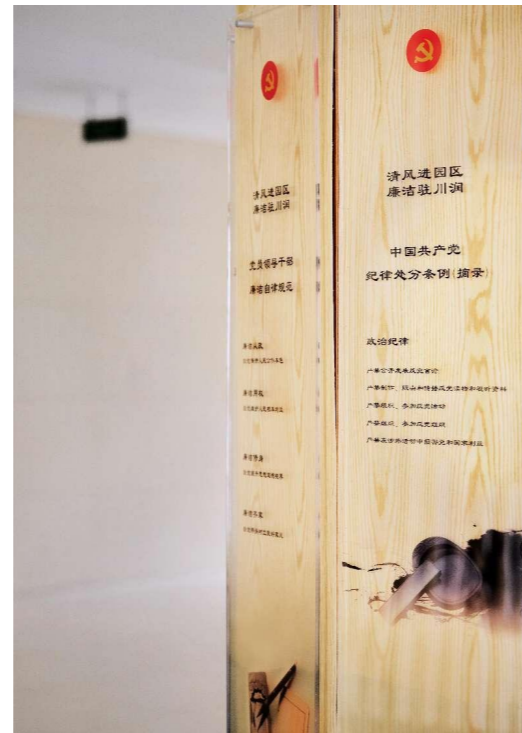 清风进园区
廉洁驻川润
党员领导干部
廉洁自律规范
廉洁从政
廉洁用权
廉洁修身
廉洁齐家
清风进园区
廉洁驻川润
中国共产党
纪律处分条例(摘录)
政治纪律
严禁公开发表反党言论
严禁制作、贩卖和传播反党读物和视听资料
严禁组织、参加反党活动
严禁组织、参加反党组织
严禁在涉外活动中损害党和国家利益